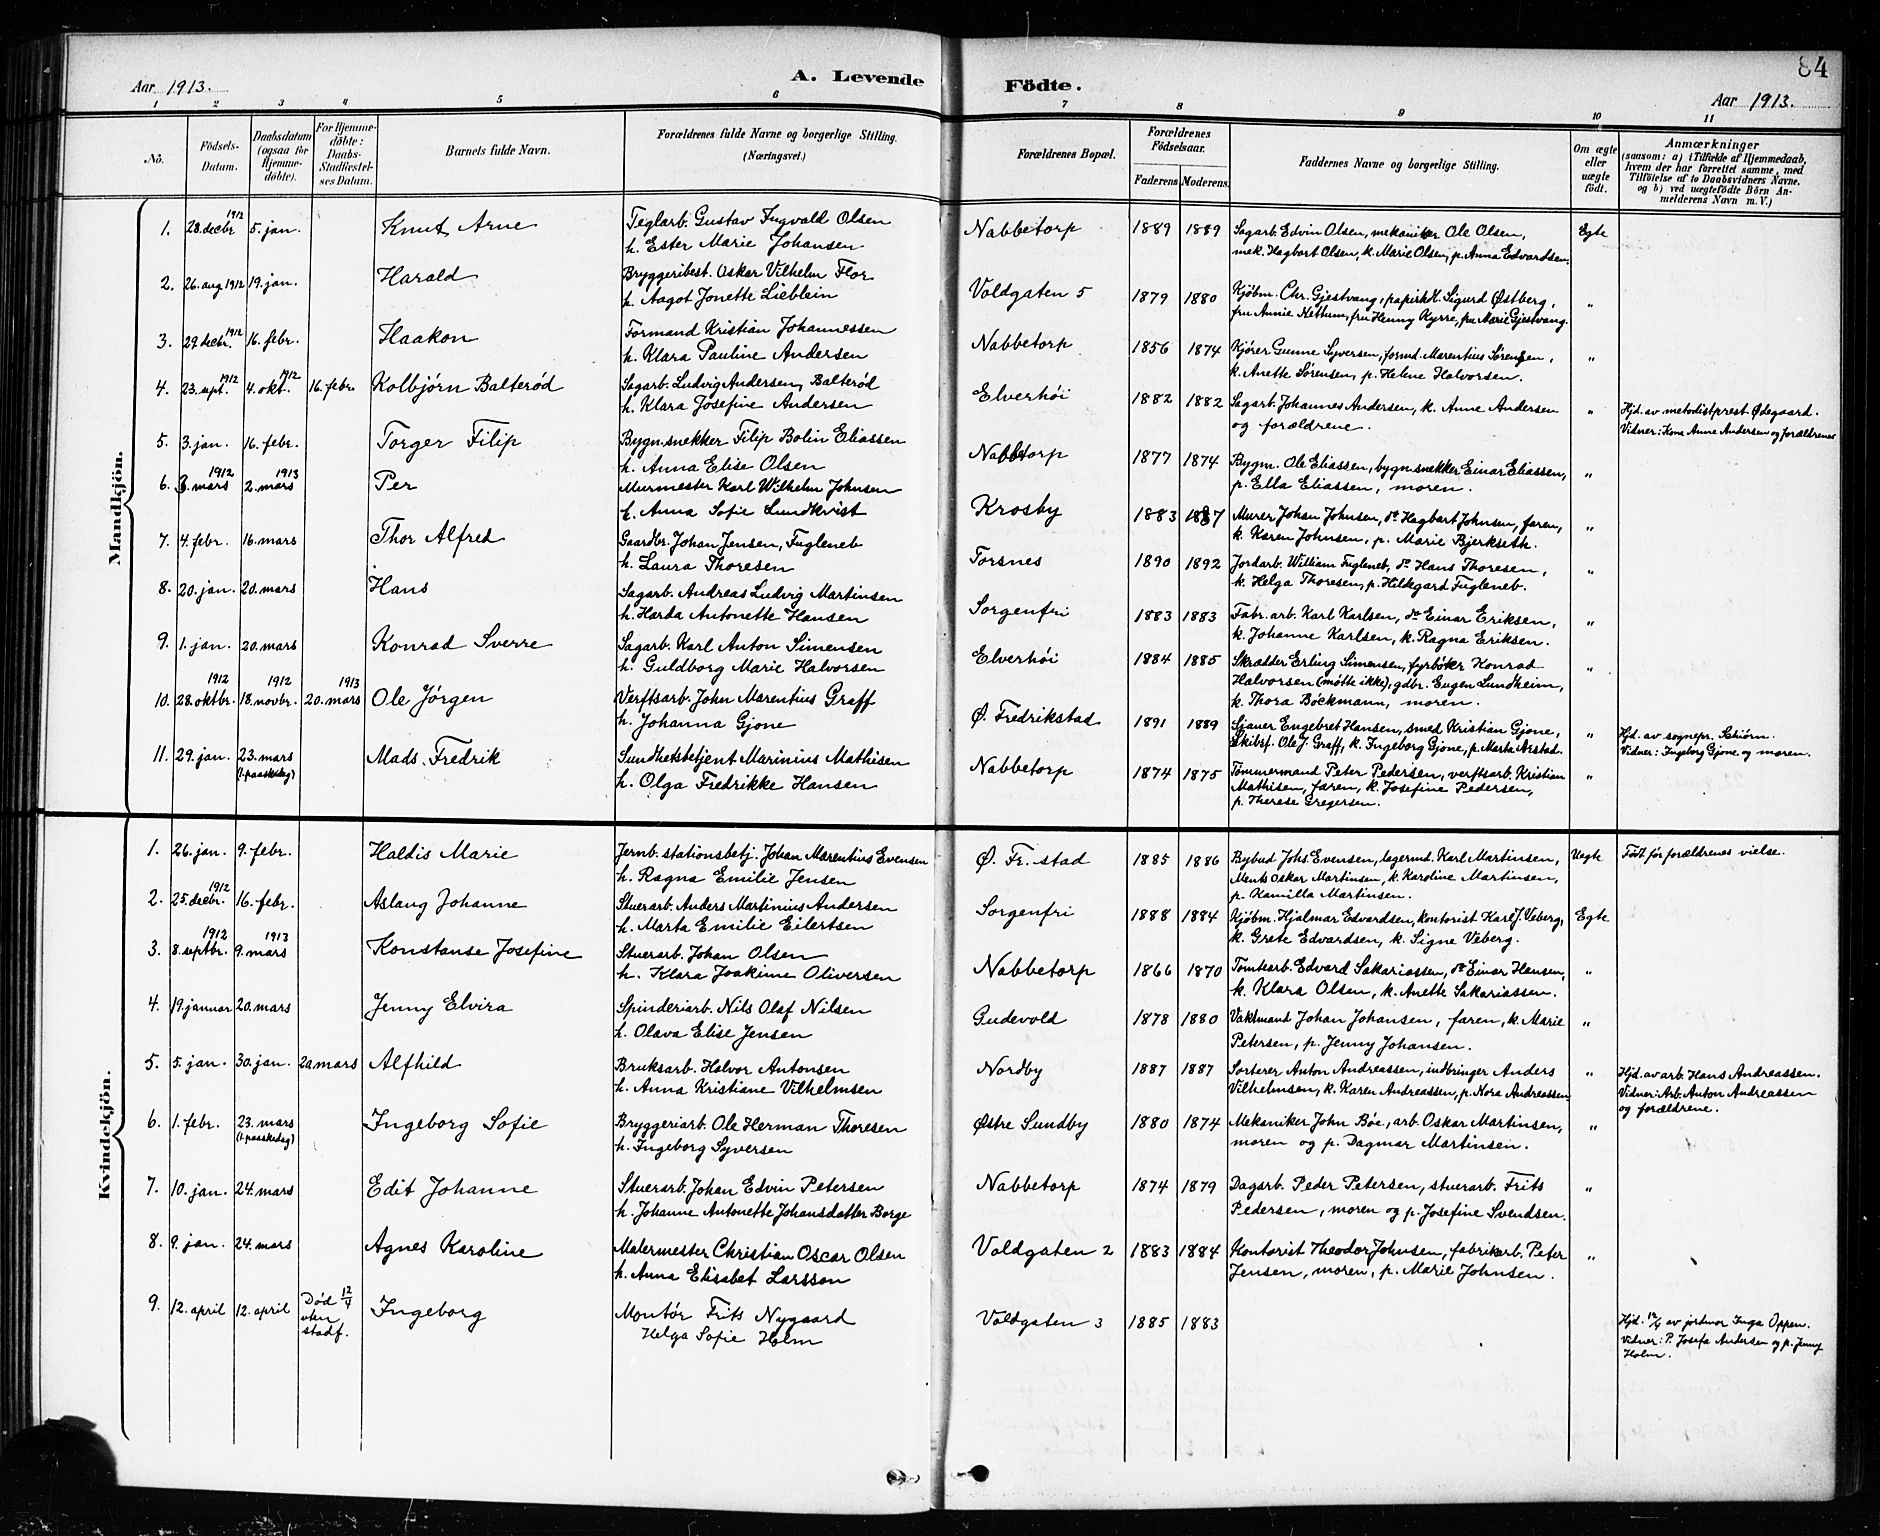 84
Aar 1913.
A. Levende Födte.
Aar 1913.
1 2 3 4 5 6 7 8 9 10 11
No.
Födsels-Datum.
Daabsdatum (ogsaa for Hjemmedöbte).
For Hjemmedöbte: Daabs-Stadfæstelses Datum.
Barnets fulde Navn.
Forældrenes fulde Navne og borgerlige Stilling. (Næringsvei.)
Forældrenes Bopæl.
Forældrenes Födselsaar.
Faderens. Moderens.
Faddernes Navne og borgerlige Stilling.
Om ægte eller uægte födt.
Anmærkninger
(saasom: a) i Tilfælde af Hjemmedaab, hvem der har forrettet samme, med Tilföielse af to Daabsvidners Navne, og b) ved uægtefödte Börn Anmelderens Navn m. V.)
Mandkjön.
1. 28. decbr 1912 5. jan. Knut Arne
Teglarb. Gustav Ingvald Olsen
h. Ester Marie Johansen
Nabbetorp 1889 1889
Sagarb. Edvin Olsen, mekaniker Ole Olsen,
mek. Hagbart Olsen, k. Marie Olsen, p. Anna Edvardsen.
Egte
2. 26. aug 1912 19. jan. Harald
Bryggeribest. Oskar Vilhelm Flor
h. Aagot Jonette Lieblein
Voldgaten 5 1879 1880
Kjøbm. Chr. Gjestvang, papirhdl. Sigurd Østberg,
fru Annie Nettum, fru Henny Kyrre, fru Marie Gjestvang.
"
3. 29 decbr. 1912 16. febr. Haakon
Formand Kristian Johannessen
h. Klara Pauline Andersen
Nabbetorp 1856 1874
Kjører Gunne Syversen, formd. Marentius Sørensen,
k. Anette Sørensen, p. Helene Halvorsen.
"
4. 23. sept. 1912 4. okt. 1912 16 febr. Kolbjørn Balterød
Sagarb. Ludvig Andersen, Balterød
h. Klara Josefine Andersen
Elverhøi 1882 1882
Sagarb. Johannes Andersen, k. Anne Andersen
og forældrene.
"
Hjd. av metodistprest Ødegaard.
Vidner: Kona Anne Andersen og forældrene
5. 3. jan. 16. febr. Torger Filip
Bygn.snekker Filip Bolin Eliassen
h. Anna Elise Olsen
Nabbetorp 1877 1874
Bygm. Ole Eliassen, bygn.snekker Einar Eliassen,
p. Ella Eliassen, moren.
"
6. 3. mars 1912 2. mars 1913 Per
Murmester Karl Wilhelm Johnsen
h. Anna Sofie Lundkvist
Krosby 1883 1887
Murer Johan Johnsen, do Hagbart Johnsen, faren,
k. Karen Johnsen, p. Marie Bjerkseth.
"
7. 4. febr. 16. mars Thor Alfred
Gaardbr. Johan Jensen, Fugleneb
h. Laura Thoresen
Torsnes 1890 1892
Jordarb. William Fugleneb, do Hans Thoresen,
k. Helga Thoresen, p. Hildegard Fugleneb.
"
8. 20. jan. 20. mars Hans
Sagarb. Andreas Ludvig Martinsen
h. Harda Antonette Hansen
Sorgenfri 1883 1883
Fabr. arb. Karl Karlsen, do Einar Eriksen,
k. Johanne Karlsen, k. Ragna Eriksen.
"
9. 1. jan. 20. mars Konrad Sverre
Sagarb. Karl Anton Simensen
h. Guldborg Marie Halvorsen
Elverhøi 1884 1885
Skrædder Erling Simensen, fyrbøter Konrad
Halvorsen (møtte ikke), gdbr. Eugen Lundheim,
k. Thora Böckmann, moren.
"
10. 28. oktbr. 1912 18. novbr. 1912 20. mars 1913 Ole Jørgen
Verftsarb. John Marentius Graff
h. Johanna Gjone
Ø. Fredrikstad 1891 1889
Sjauer Engebret Hansen, smed Kristian Gjone,
Skibsf. Ole J. Graff, k. Ingeborg Gjone, p. Marta Aistad.
"
Hjd. av sognepr. Schiørn.
Vidner: Ingeborg Gjone og moren.
11. 29. jan. 23. mars (1. paaskedag) Mads Fredrik
Sundhetsbetjent Marinius Mathisen
h. Olga Fredrikke Hansen
Nabbetorp 1874 1875
Tømmermand Peter Pedersen, verftsarb. Kristian
Mathisen, faren, k. Josefine Pedersen,
p. Therese Gregersen.
"
Kvindekjön.
1. 26. jan. 9. febr. Haldis Marie
Jernb. stationsbetj. Johan Marentius Evensen
h. Ragna Emilie Jensen
Ø. Fr. stad 1885 1886
Bybud Johs Evensen, lagermd. Karl Martinsen,
Ments Oskar Martinsen, k. Karoline Martinsen,
p. Kamilla Martinsen.
Uegte
Født før forældrenes vielse.
2. 25. decbr. 1912 16. febr. Aslaug Johanne
Stuerarb. Anders Martinius Andersen
h. Marta Emilie Eilertsen
Sorgenfri 1888 1884
Kjøbm. Hjalmar Edvardsen, kontorist Karl J. Veberg,
k. Grete Edvardsen, k. Signe Veberg.
Egte
3. 8. septbr. 1912 9. mars 1913 Konstanse Josefine
Stuerarb. Johan Olsen
h. Klara Joakime Oliversen
Nabbetorp 1866 1870
Tomtearb. Edvard Sakariassen, do Einar Hansen,
k. Klara Olsen, k. Anette Sakariassen.
"
4. 19. januar 20. mars Jenny Elvira
Spinderiarb. Nils Olaf Nilsen
h. Olava Elise Jensen
Gudevold 1878 1880
Vaktmand Johan Johansen, faren, k. Marie
Petersen, p. Jenny Johansen.
"
5. 5. jan. 30. jan. 20 mars Alfhild
Bruksarb. Halvor Antonsen
h. Anna Kristiane Vilhelmsen
Nordby 1887 1887
Sorterer Anton Andreassen, indbringer Anders
Vilhelmsen, k. Karen Andreassen, p. Nora Andreassen
"
Hjd. av arb. Hans Andreassen.
Vidner: Arb. Anton Andreassen
og forældrene.
6. 1. febr. 23. mars (1. paaskedag) Ingeborg Sofie
Bryggeriarb. Ole Herman Thoresen
h. Ingeborg Syversen
Østre Sundby 1880 1874
Mekaniker John Bøe, arb. Oskar Martinsen,
moren og p. Dagmar Martinsen.
"
7. 10. jan. 24. mars Edit Johanne
Stuerarb. Johan Edvin Petersen
h. Johanne Antonette Johansdatter Borge
Nabbetorp 1874 1879
Dagarb. Peder Petersen, stuerarb. Frits
Pedersen, moren og p. Josefine Svendsen.
"
8. 9. jan. 24. mars Agnes Karoline
Malermester Christian Oscar Olsen
h. Anna Elisabet Larsson
Voldgaten 2 1883 1884
Kontorist Theodor Johnsen, fabrikarb. Peter
Jensen, moren, p. Marie Johnsen.
"
9. 12. april 12. april Død 12/4 uten stadf. Ingeborg
Montør Frits Nygaard
Helga Sofie Holm
Voldgaten 3 1885 1883
Hjd. 12/4 av jordmor Inga Oppen.
Vidner: P. Josefa Andersen og p. Jenny
Holm.